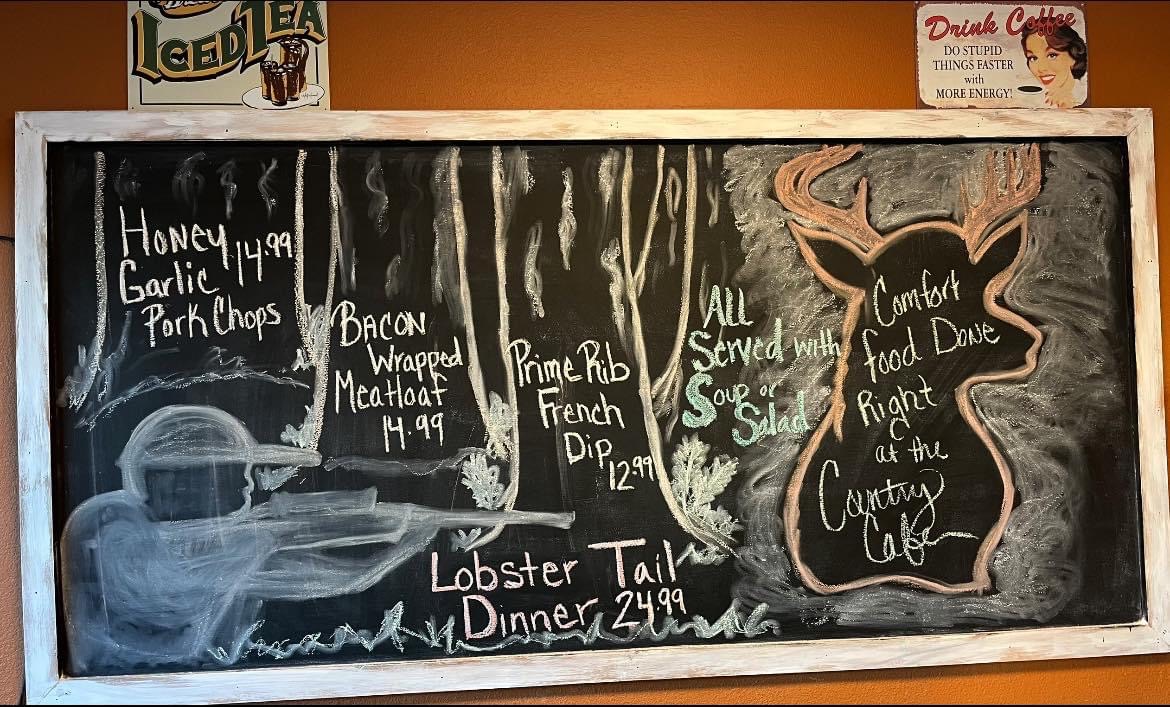 ICED TEA
Drink Coffee
DO STUPID
THINGS FASTER
with
MORE ENERGY!
Honey 14.99
Garlic
Pork Chops
Bacon
Wrapped
Meatloaf
14.99
Prime Rib
French
Dip 12.99
All
Served with
Soup or
Salad
Lobster Tail
Dinner 24.99
Comfort
food Done
Right
at the
Country
Cafe